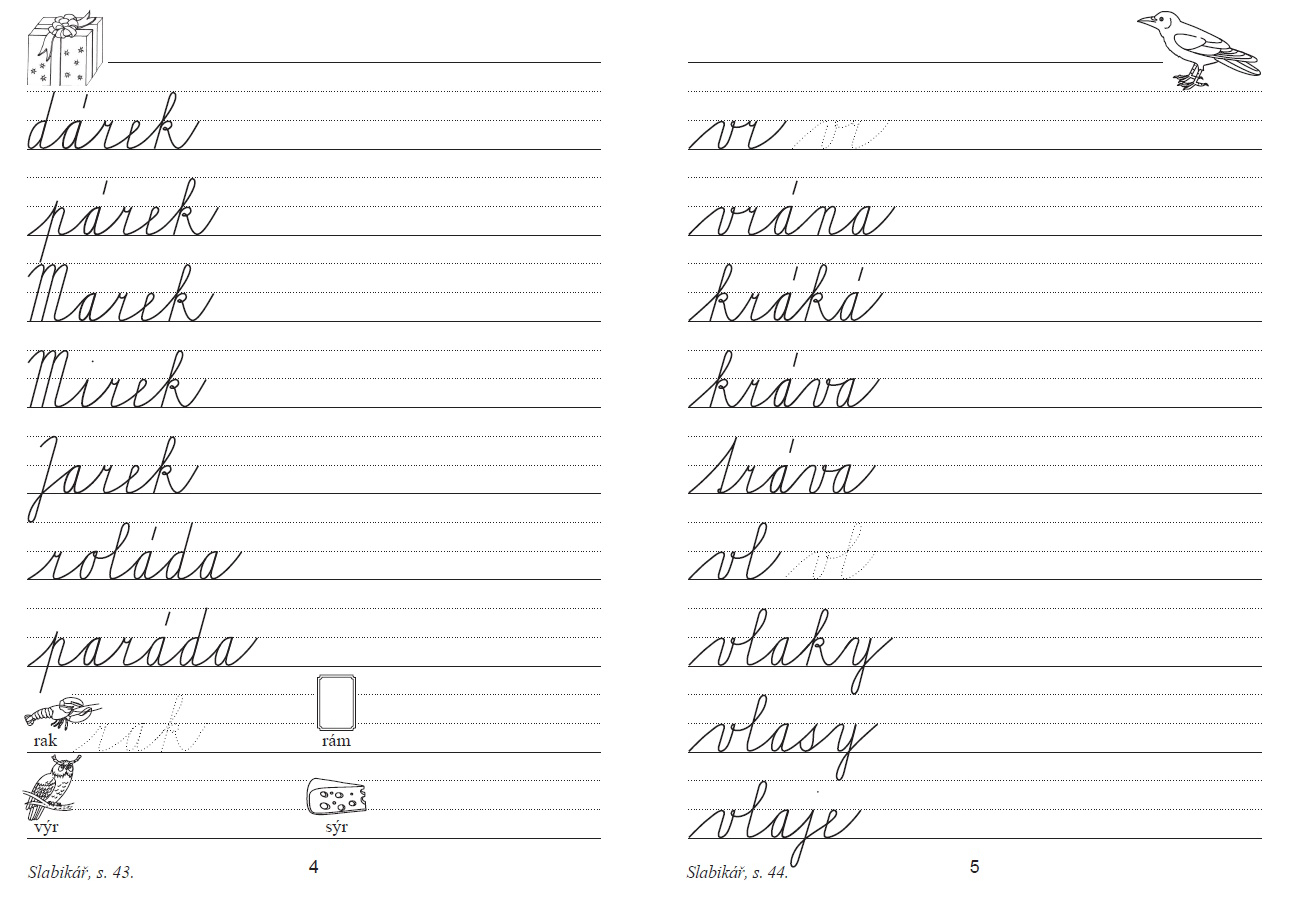 dárek
párek
Marek
Mirek
Jarek
roláda
paráda
rak rak rám
výr sýr
Slabikář, s. 43. 4
vr vr
vrána
kráká
kráva
tráva
vl vl
vlaky
vlasy
vlaje
Slabikář, s. 44. 5